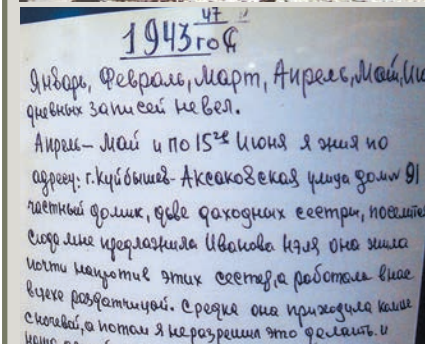 47
1943 год
Январь, Февраль, Март, Апрель, Май, Ию
дневных записей не вел.
Апрель – Май и по 15ое Июня я жил по
адресу: г. Куйбышев-Аксаковская улица дом № 91
частный домик, две доходных сестри,
сюда мне предложила Иванова Нэля она жила
почти напротив этих сестер, а работала в нас
в цехе раздатчицой. Средка она приходила
с ночевой, а потом я не разрешил это делать. и